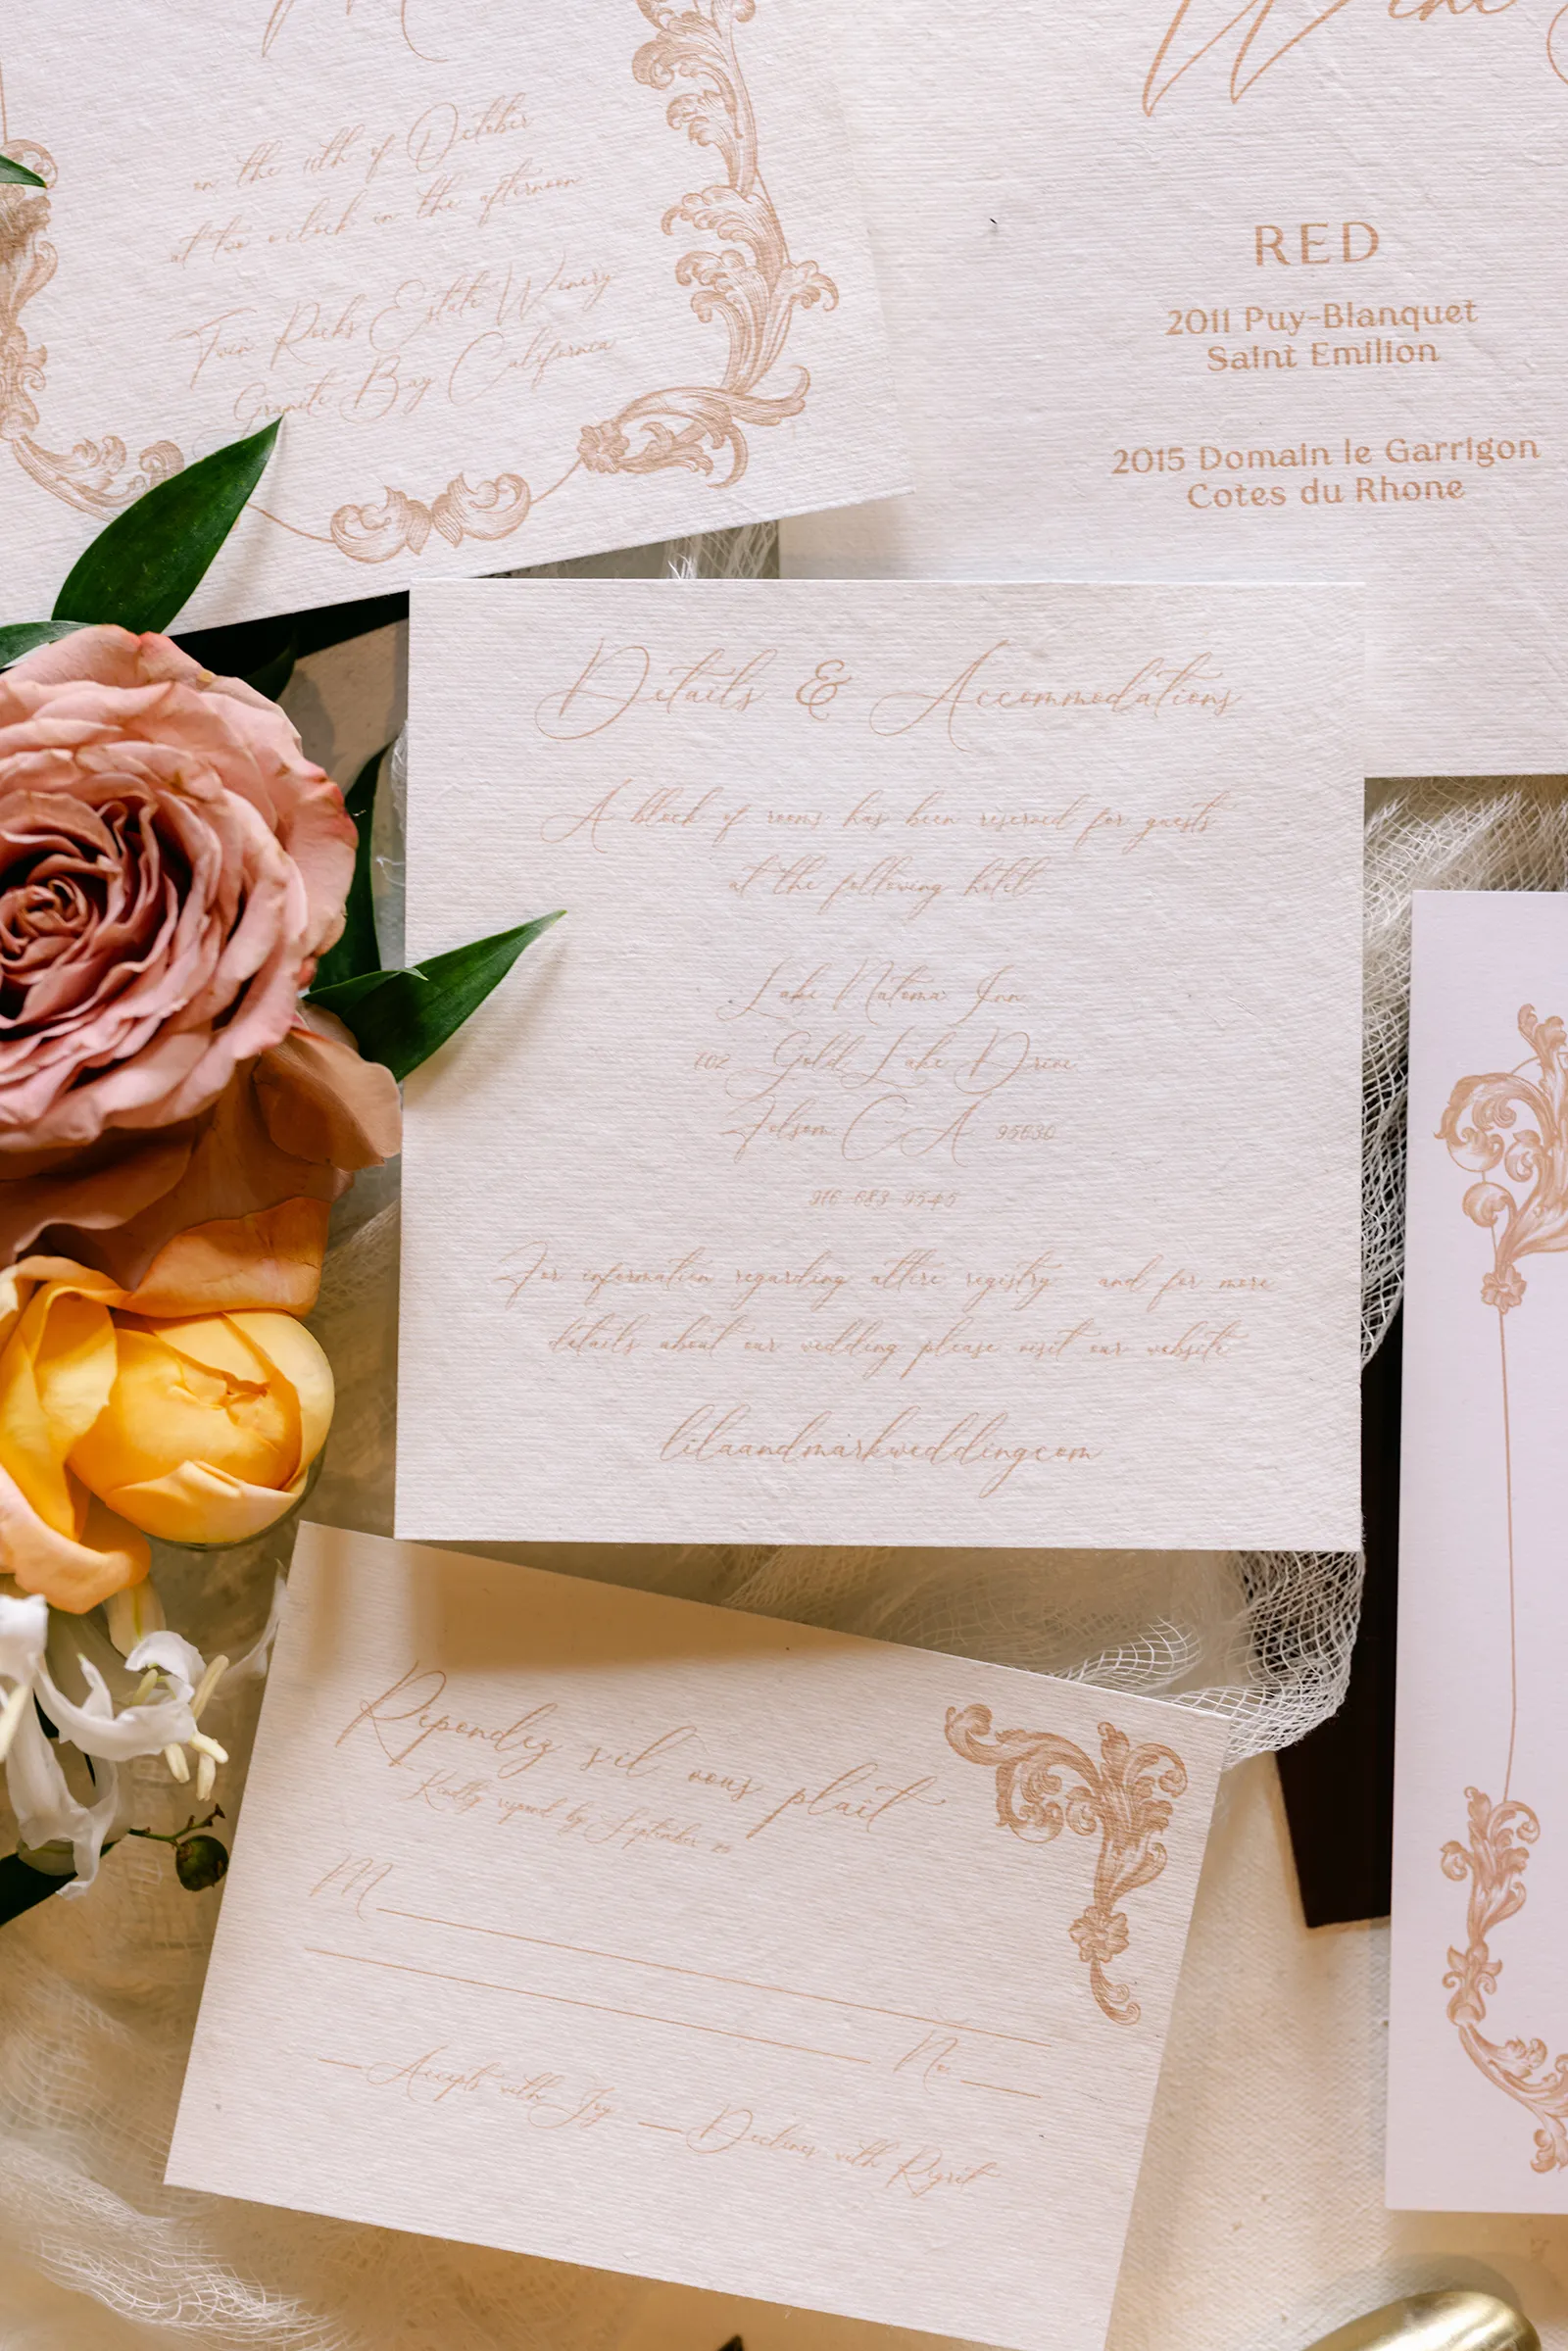 on the 11th of October
at two o'clock in the afternoon
Twin Rocks Estate Winery
Granite Bay California
Wine
RED
2011 Puy-Blanquet
Saint Emilion
2015 Domain le Garrigon
Cotes du Rhone
Details & Accommodations
A block of rooms has been reserved for guests
at the following hotel
Lake Natoma Inn
702 Gold Lake Drive
Folsom CA 95630
916-683-9545
For information regarding attire registry and for more
details about our wedding please visit our website
lilaandmarkweddingcom
Repondez s'il vous plait
Kindly respond by September
M
No.
Accepts with Joy
Declines with Regret